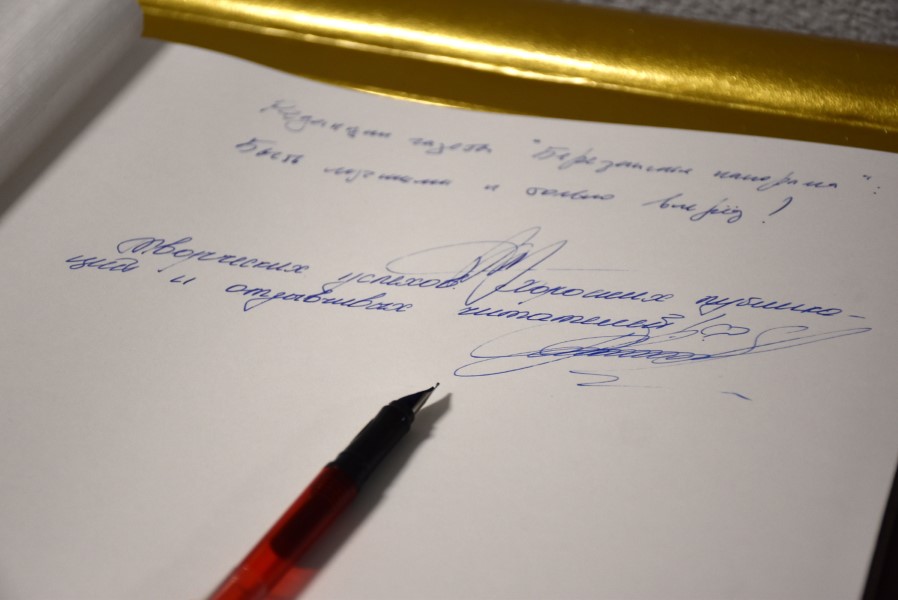 Редакции газеты "Березанская панорама":
Быть лучшими и только вперёд!
Творческих успехов! Хороших публика-
ций и отзывчивых читателей!